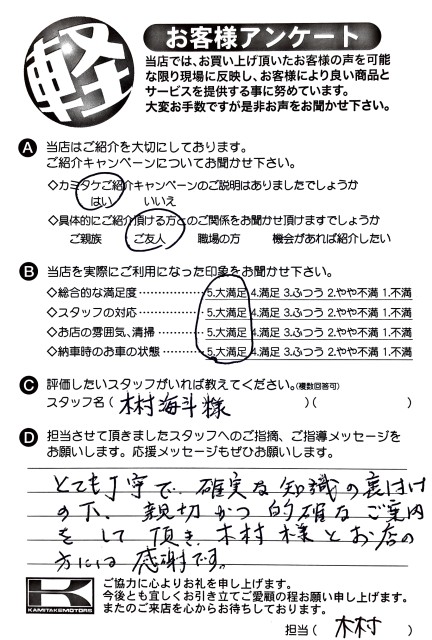 軽
お客様アンケート
当店では、お買い上げ頂いたお客様の声を可能
な限り現場に反映し、お客様により良い商品と
サービスを提供する事に努めています。
大変お手数ですが是非お声をお聞かせ下さい。
A 当店はご紹介を大切にしております。
ご紹介キャンペーンについてお聞かせ下さい。
◇カミタケご紹介キャンペーンのご説明はありましたでしょうか
はい いいえ
◇具体的にご紹介頂ける方とのご関係をお聞かせ頂けますでしょうか
ご親族 ご友人 職場の方 機会があれば紹介したい
B 当店を実際にご利用になった印象をお聞かせ下さい。
◇総合的な満足度‥‥‥‥5.大満足 4.満足 3.ふつう 2.やや不満 1.不満
◇スタッフの対応‥‥‥‥5.大満足 4.満足 3.ふつう 2.やや不満 1.不満
◇お店の雰囲気、清掃‥‥‥5.大満足 4.満足 3.ふつう 2.やや不満 1.不満
◇納車時のお車の状態‥‥‥5.大満足 4.満足 3.ふつう 2.やや不満 1.不満
C 評価したいスタッフがいれば教えてください。(複数回答可)
スタッフ名( 木村海斗様 )( )
D 担当させて頂きましたスタッフへのご指摘、ご指導メッセージを
お願いします。応援メッセージもぜひお願いします。
とても丁寧で、確実な知識の裏付け
の下、親切かつ的確なご案内
をして頂き、木村様とお店の
方には感謝です。
K
KAMITAKEMOTORS
ご協力に心よりお礼を申し上げます。
今後とも宜しくお引き立てご愛顧の程お願い申し上げます。
またのご来店を心からお待ちしております。
担当( 木村 )